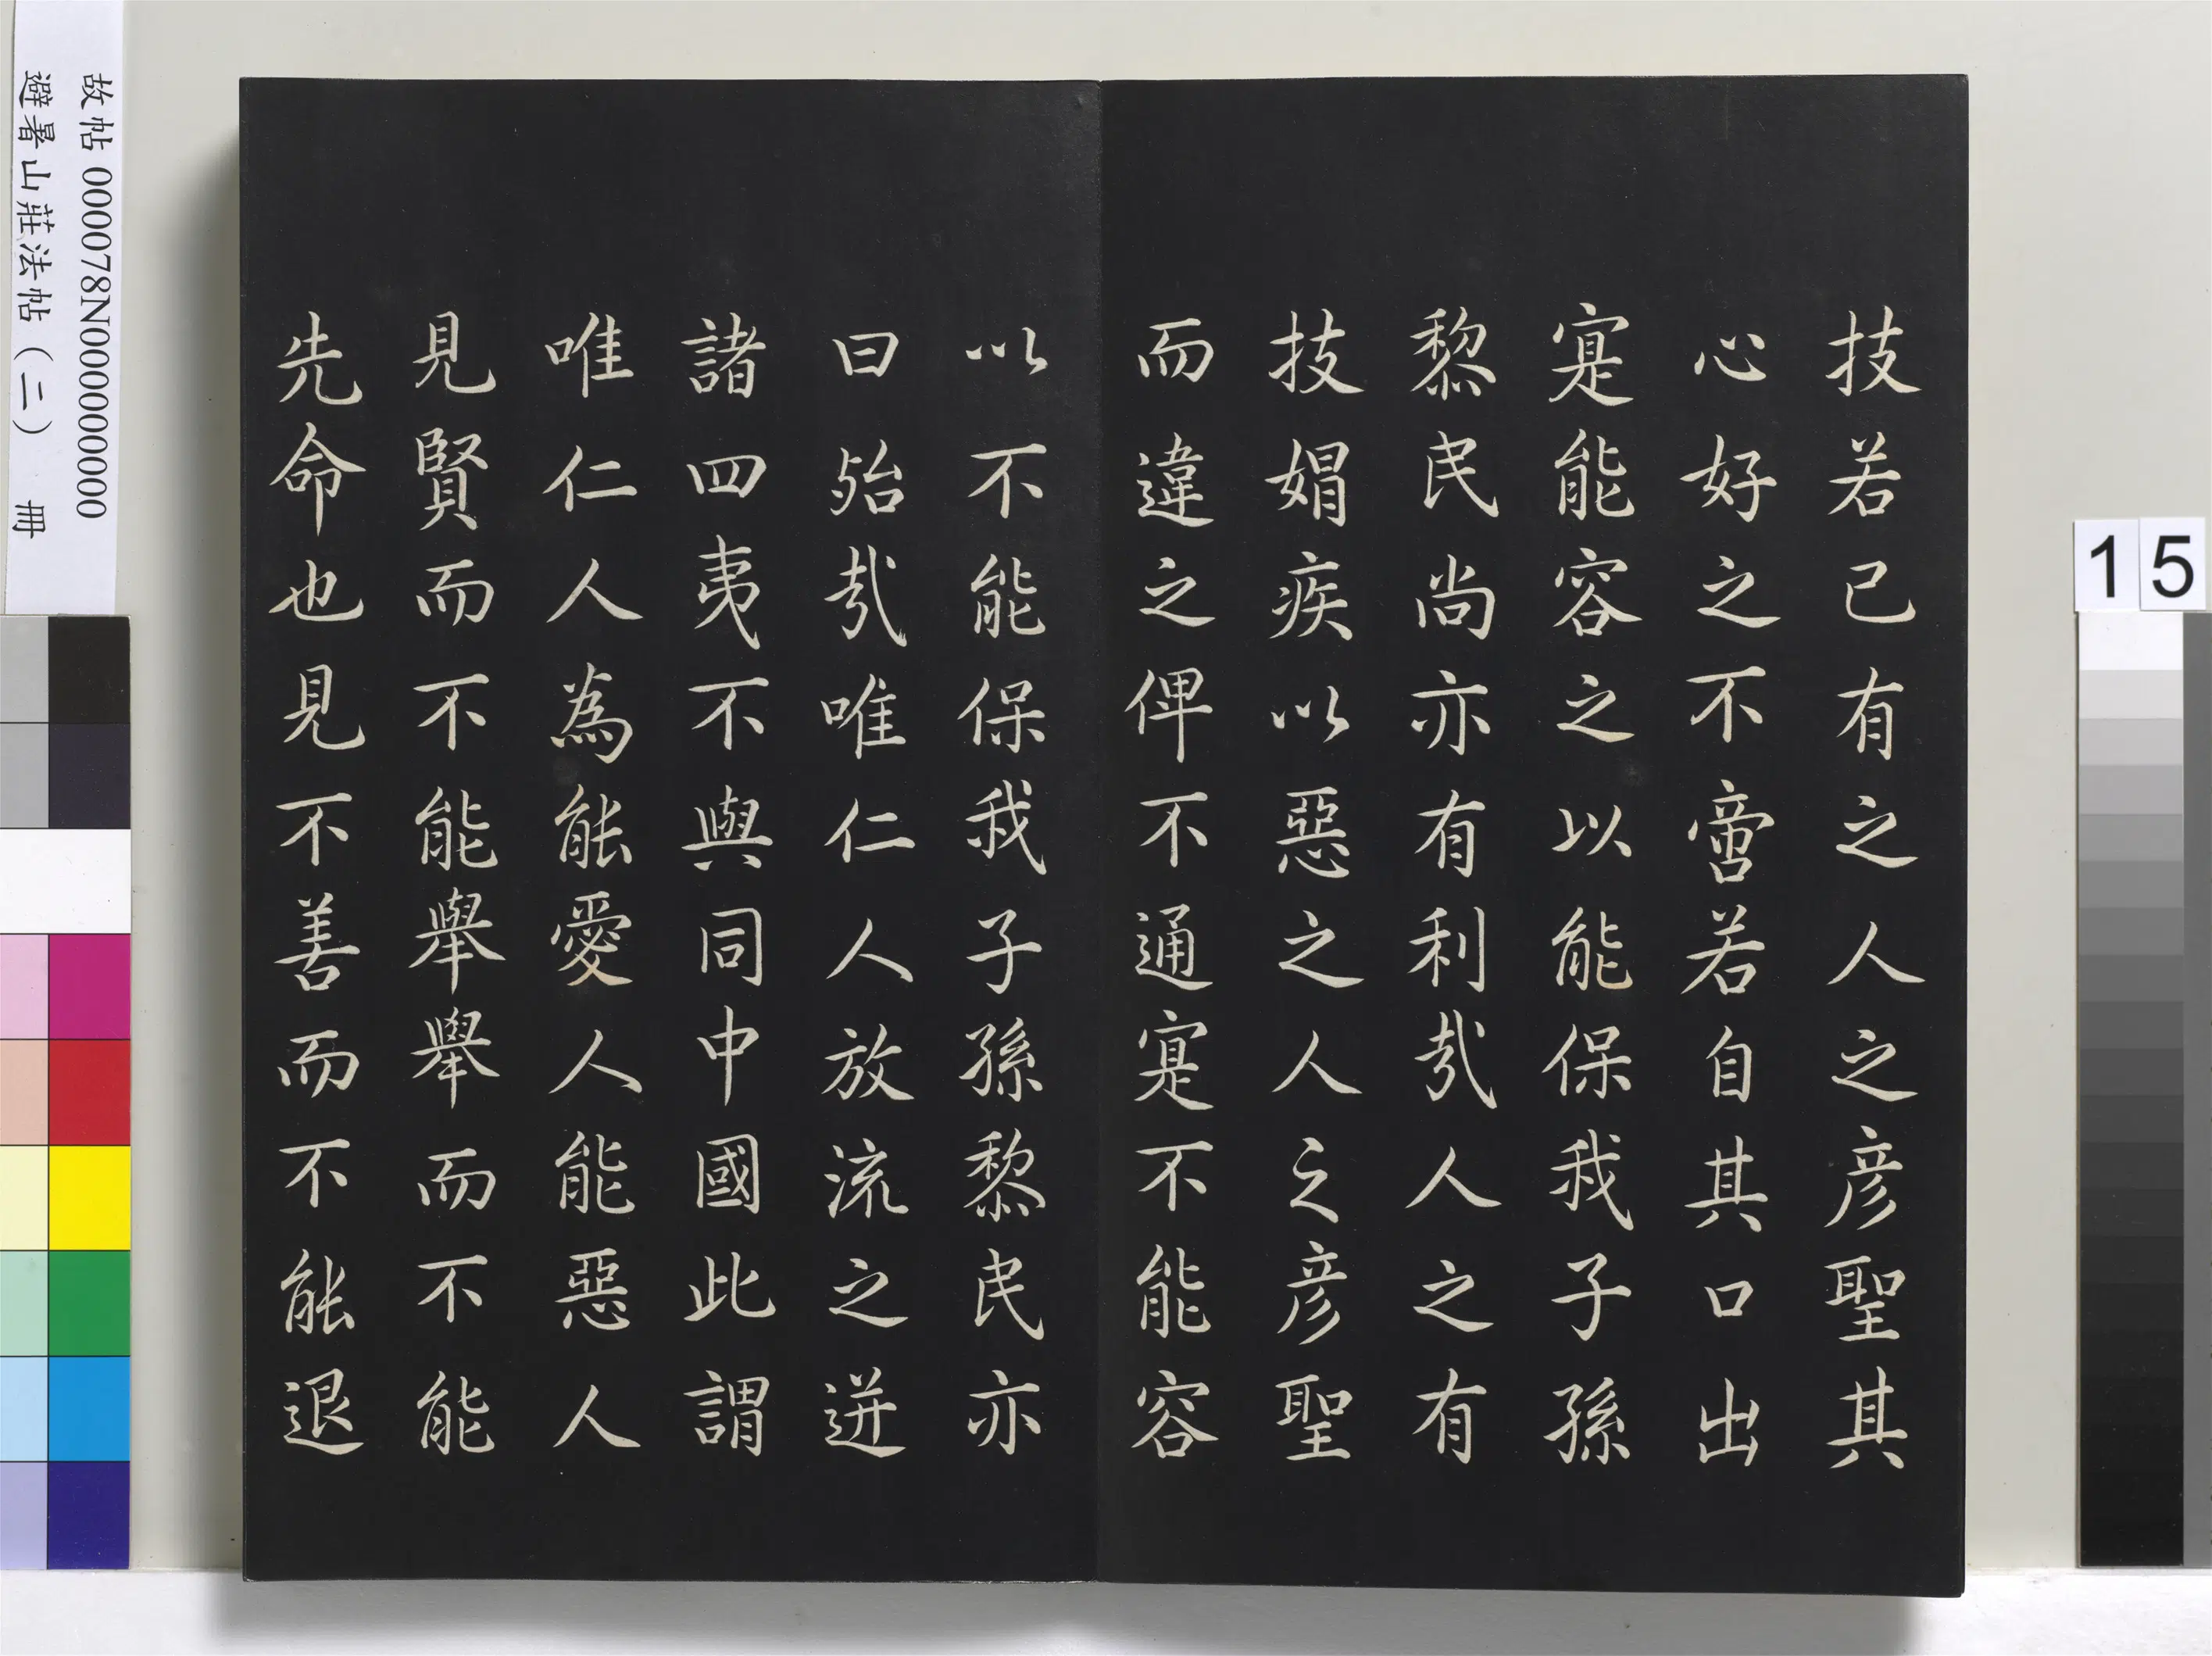 技若已有之人之彦聖其
心好之不啻若自其口出
寔能容之以能保我子孫
黎民尚亦有利哉人之有
技娼疾以惡之人之彦聖
而違之俾不通寔不能容
以不能保我子孫黎民亦
曰殆哉唯仁人放流之迸
諸四夷不與同中國此謂
唯仁人為能愛人能惡人
見賢而不能舉舉而不能
先命也見不善而不能退
故帖 000078N000000000
避暑山莊法帖（二） 冊
15